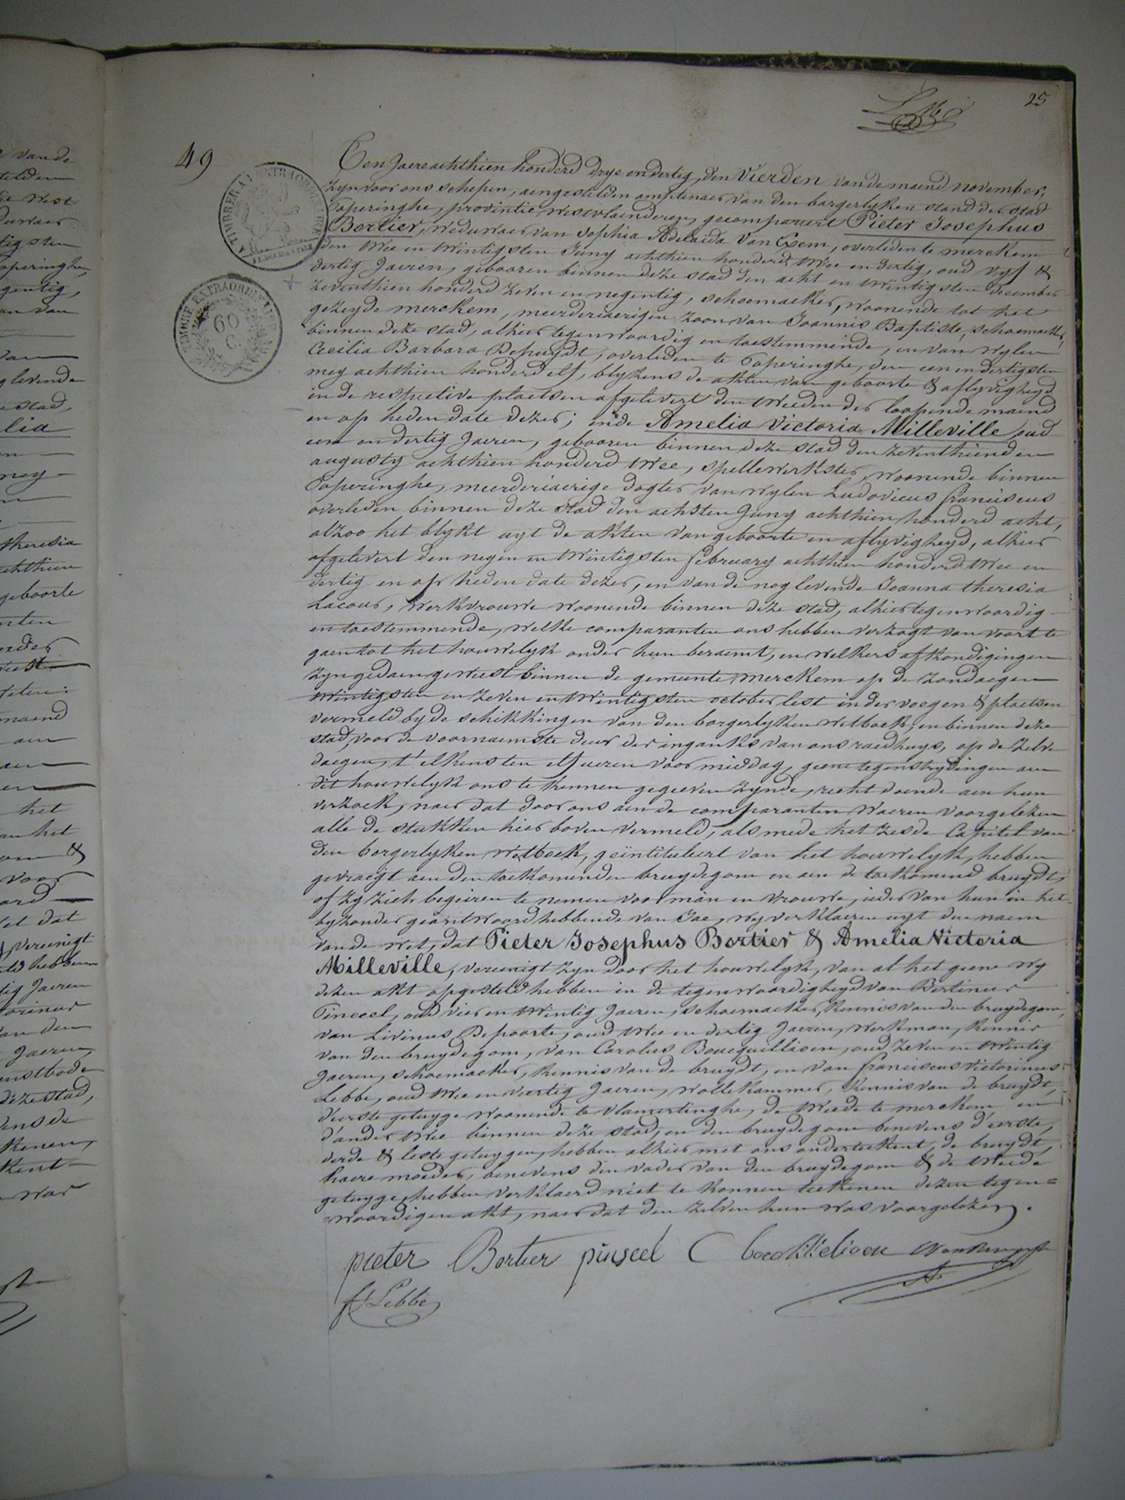 25
49
Een Jaere achthien honderd drye en dertig, den Vierden van de maend november,
zyn voor ons schepen, aengestelden amptenaer van den borgerlyken stand der stad
Poperinghe, provintie Westvlaenderen, gecompareert Pieter Josephus
Bertier, weduwaer van Sophia Adelaida Van Exem, overleden te merckem
den twee en twintigsten Juny achthien honderd twee en dertig, oud vyf &
dertig Jaeren, gebooren binnen deze stad den acht en twintigsten december
zeventhien honderd zeven en negentig, schoemaeker, woonende tot het
gezeyde merckem, meerderjaerigen zoon van Joannis Baptiste, schoemaeker
binnen deze stad, alhier tegenwoordig en toestemmende, en van wylen
Cecilia Barbara Depuydt, overleden te Poperinghe, den een en dertigsten
mey achthien honderd elf, blykens de akten van geboorte & aflyvigheyd
in de respective plaetsen afgelevert den tweeden der loopende maend
en op heden date dezer; ende Amelia Victoria Milleville oud
een en dertig Jaeren, gebooren binnen deze stad den zeventhienden
augusty achthien honderd twee, spellewerkster, woonende binnen
Poperinghe, meerderjaerige dogter van wylen Ludovicus franciscus
overleden binnen deze stad den achsten Juny achthien honderd acht,
alzoo het blykt uyt de akten van geboorte en aflyvigheyd, alhier
afgelevert den negen en twintigsten february achthien honderd twee en
dertig en op heden date dezer, en van de nog levende Joanna theresia
Lacour, werkvrouwe woonende binnen deze stad, alhier tegenwoordig
en toestemmende, welke comparanten ons hebben verzogt van voort te
gaen tot het houwelyk onder hun beraemt, en welkers afkondigingen
zyn gedaen geweest binnen de gemeente merckem op de zondaegen
twintigsten en zeven en twintigsten october lest in der voegen & plaetsen
vermeld by de schikkingen van den borgerlyken wetboek, en binnen deze
stad, voor de voornaemste deur der ingank van ons raedhuys, op de zelve
daegen, t'elkensten elf ueren voor middag, geene tegenstrydingen aen
dit houwelyk ons te kennen gegeeven zynde, recht doende aen hun
verzoek, naer dat door ons aen de comparanten waeren voorgelezen
alle de stukken hier boven vermeld, als mede het zesde Capitel van
den borgerlyken wetboek, geïntituleert van het houwelyk, hebben
gevraegt aen den toekomenden bruydegom en aen de toekomend bruydt,
of zy zich begeiren te nemen voor man en vrouwe, ieder van hun in het
byzonder geäntwoord hebbende van Jae, wy verklaeren uyt den naem
van de wet, dat Pieter Josephus Bertier & Amelia Victoria
Milleville, vereenigt zyn door het houwelyk, van al het geene wy
dezen akt opgesteld hebben in de tegenwoordigheyd van Bertinus
Pinceel, oud vier en twintig Jaeren, schoemaeker, kennis van den bruydegom,
van Livinus Depoorte, oud twee en dertig Jaeren, werkman, kennis
van den bruydegom, van Carolus Boucquillioen, oud zeven en twintig
Jaeren, schoemaeker, kennis van de bruydt, en van franciscus Victorinus
Lebbe, oud twee en veertig Jaeren, wollekammer, kennis van de bruydt,
d'eerste getuyge woonende te Vlamertinghe, de tweede te merckem en
d'ander twee binnen deze stad, en den bruydegom benevens d'eerste,
derde & leste getuygen, hebben alhier met ons onderteekent, de bruydt,
haere moeder, benevens den vader van den bruydegom & de tweede
getuyge, hebben verklaerd niet te konnen teekenen dezen tegen=
=woordigen akt, naer dat den zelven hun was voorgelezen.
pieter Bertier pinseel C boeckkelioen
f. Lebbe